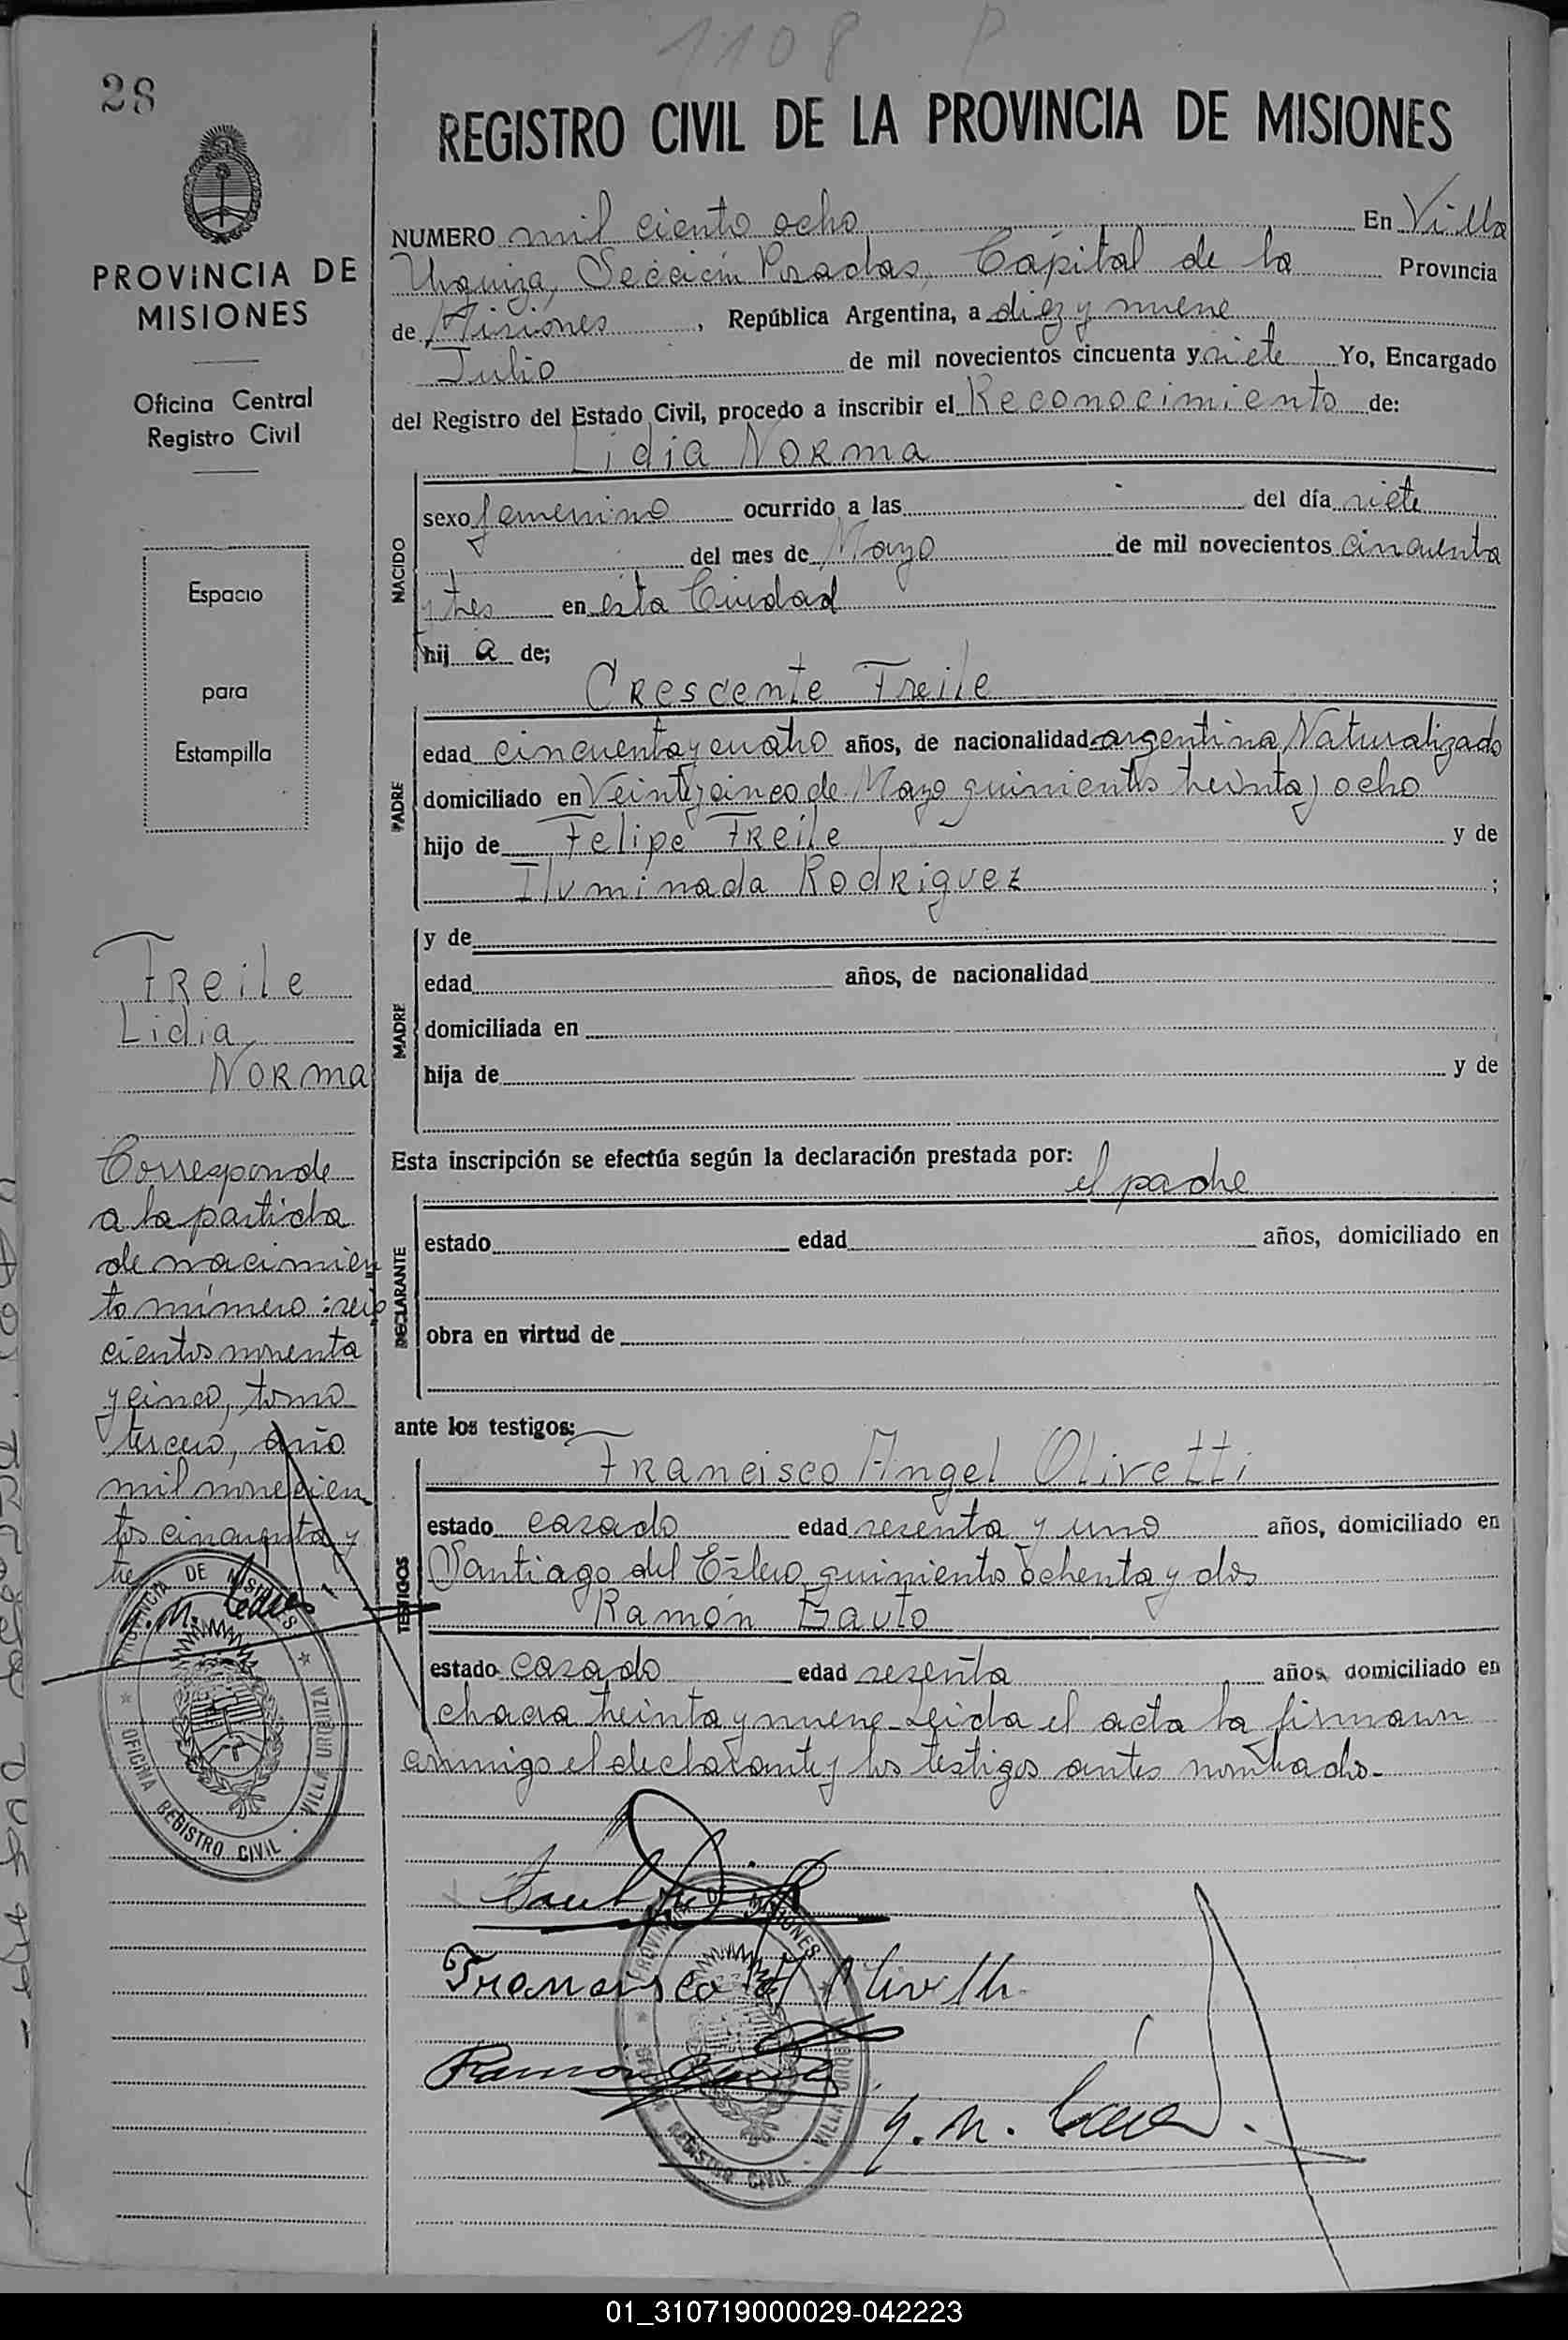 1108 P
28
REGISTRO CIVIL DE LA PROVINCIA DE MISIONES
PROVINCIA DE
MISIONES
Oficina Central
Registro Civil
Espacio
para
Estampilla
NUMERO mil ciento ocho En Villa
Urquiza, Sección Posadas, Capital de la Provincia
de Misiones, República Argentina, a diez y nueve
Julio de mil novecientos cincuenta y siete Yo, Encargado
del Registro del Estado Civil, procedo a inscribir el Reconocimiento de:
Lidia Norma
NACIDO
sexo femenino ocurrido a las del día siete
del mes de Mayo de mil novecientos cincuenta
y tres en esta Ciudad
hij a de;
Crescente Freile
PADRE
edad cincuenta y cuatro años, de nacionalidad argentina Naturalizado
domiciliado en Veinte y cinco de Mayo quinientos treinta y ocho
hijo de Felipe Freile y de
Iluminada Rodriguez ;
MADRE
y de
edad años, de nacionalidad
domiciliada en
hija de y de
Freile
Lidia
Norma
Corresponde
a la partida
de nacimien
to número: seis
cientos noventa
y cinco, tomo
tercero, año
mil novecien
tos cincuenta y
tres
PROVINCIA DE MISIONES
OFICINA REGISTRO CIVIL · VILLA URQUIZA
Esta inscripción se efectúa según la declaración prestada por:
el padre
DECLARANTE
estado edad años, domiciliado en
obra en virtud de
ante los testigos:
Francisco Angel Olivetti
TESTIGOS
estado casado edad sesenta y uno años, domiciliado en
Santiago del Estero quinientos ochenta y dos
Ramón Gauto
estado casado edad sesenta años domiciliado en
chacra treinta y nueve - Leida el acta la firmaron
conmigo el declarante y los testigos antes nombrados.-
Francisco A Olivetti
Ramón Gauto
PROVINCIA DE MISIONES
OFICINA REGISTRO CIVIL · VILLA URQUIZA
01_310719000029-042223